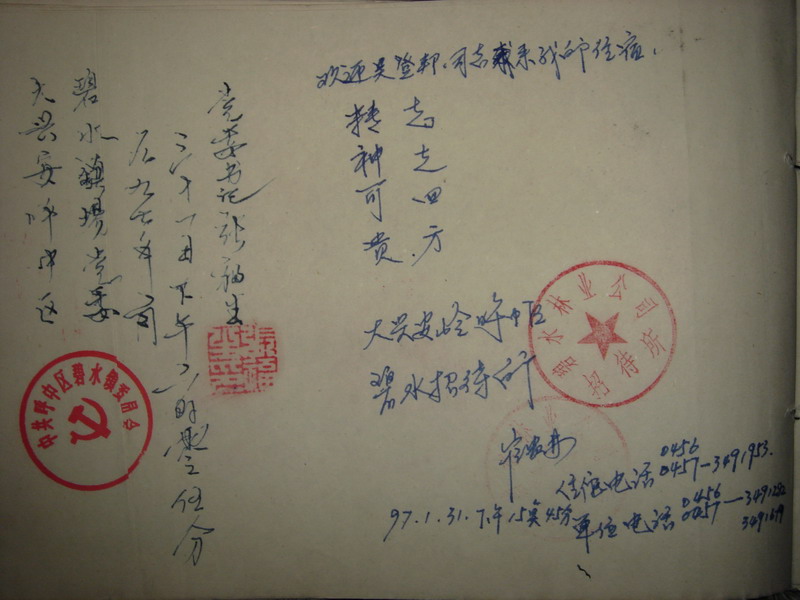 欢迎吴登邦同志来我所住宿.
志走四方
精神可贵
大兴安岭呼中区
碧水招待所
住宅电话 0456 0457-3491953.
97.1.31.下午15点45分
单位电话 0456 0457—3491282
3491619
碧水林业公司
招待所
大兴安岭呼中区
碧水镇场党委
一九九七年一月
三十一日下午六时零五分
党委书记张福生
中共呼中区碧水镇委员会